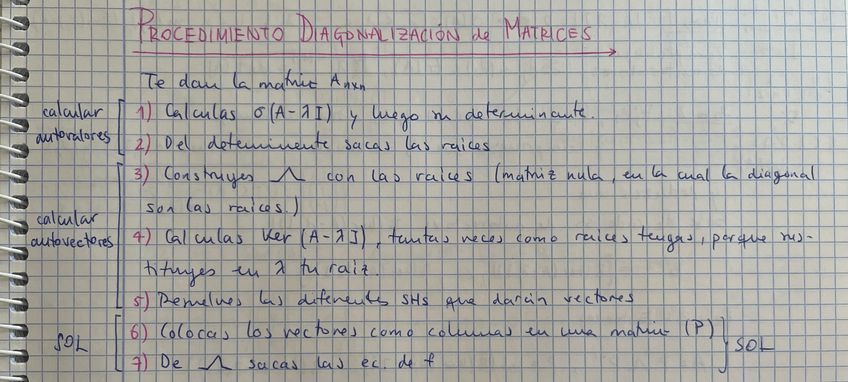 PROCEDIMIENTO DIAGONALIZACIÓN de MATRICES
Te dan la matriz Anxn
calcular autovalores
1) Calculas σ(A-λI) y luego su determinante.
2) Del determinante sacas las raíces
calcular autovectores
3) Construyes Λ con las raíces (matriz nula, en la cual la diagonal
son las raíces.)
4) Calculas Ker (A-λI), tantas veces como raíces tengas, porque sus-
tituyes en λ tu raíz.
5) Resuelves las diferentes SHs que darán vectores
SOL
6) Colocas los vectores como columnas en una matriz (P)
7) De Λ sacas las ec. de f
SOL